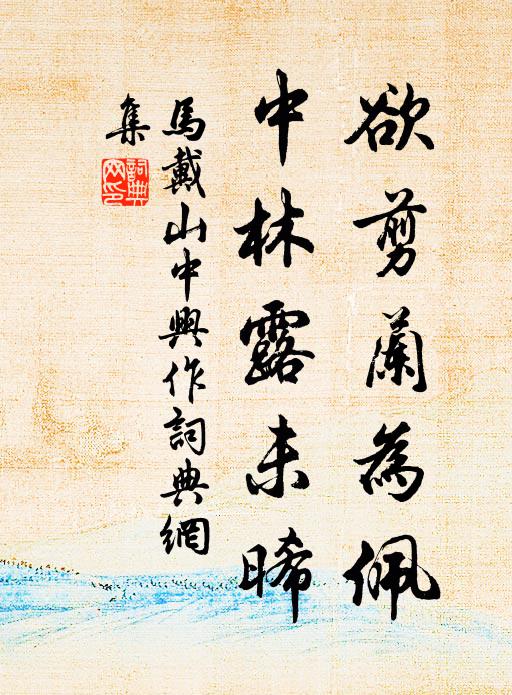 欲剪蘭為佩
中林露未晞
馬戴山中興作詞典網
集
詞典
网印